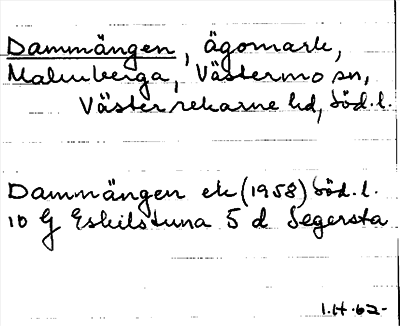 Dammängen, ägomark,
Malmberga, Västermo sn,
Västerrekarne hd, Söd.l.
Dammängen ek (1958) Söd.l.
10 G Eskilstuna 5 d Segersta
1.H.62-